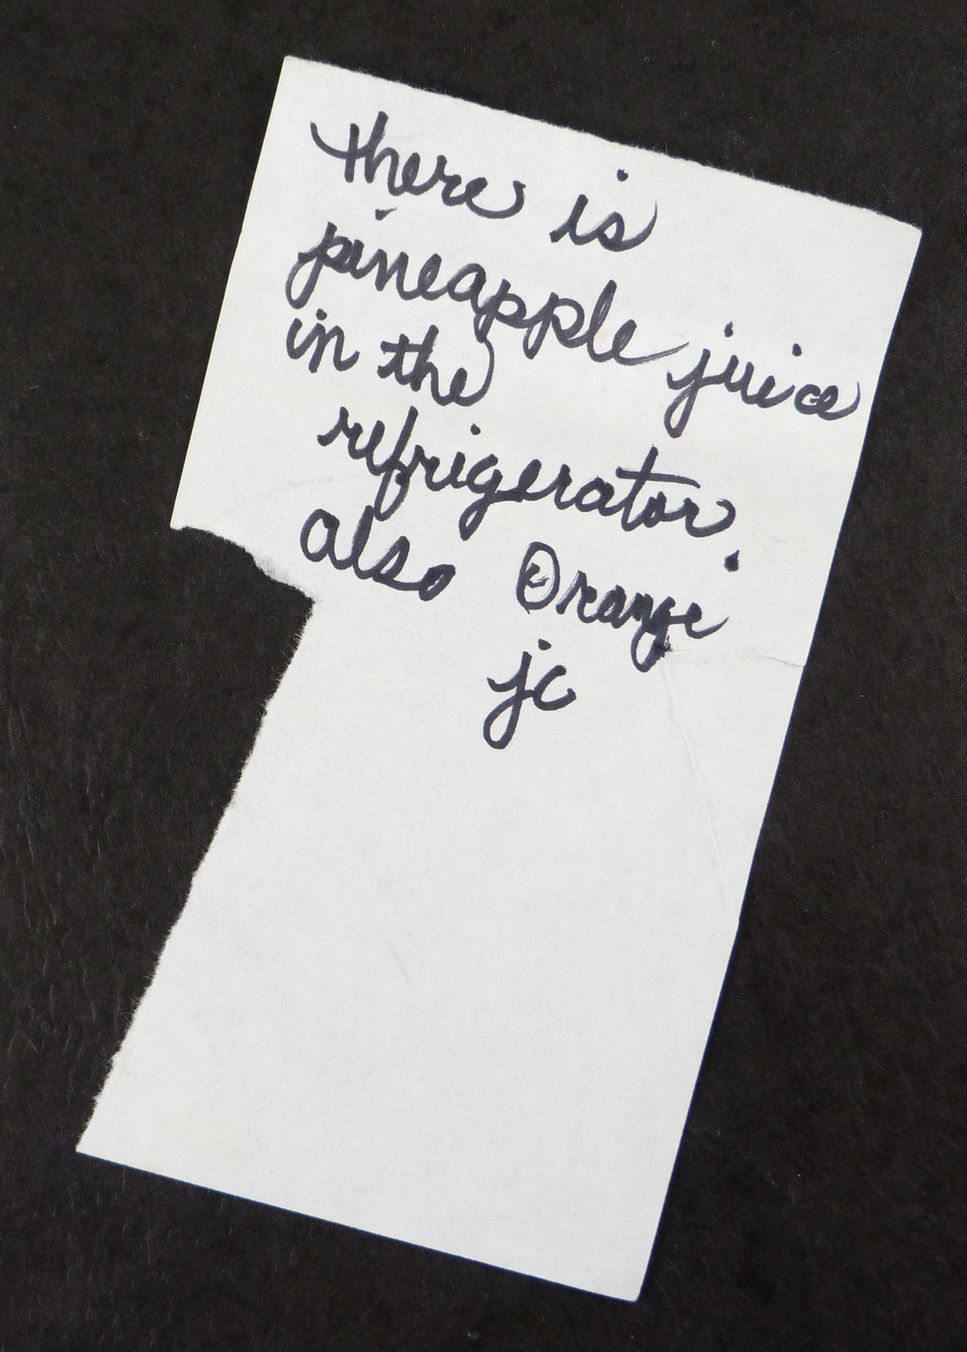 there is
pineapple juice
in the
refrigerator.
also Orange
jc